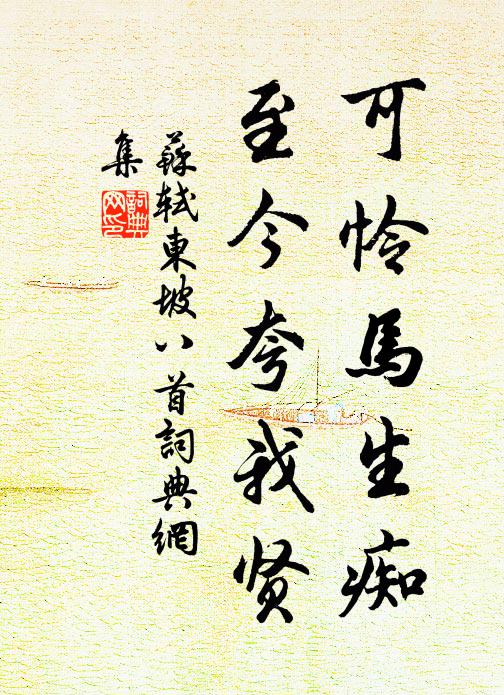 可怜馬生痴
至今夸我贤
蘇轼東坡八首詞典網
集
詞典
网印